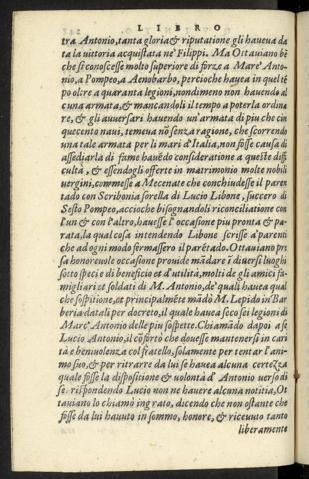 LIBRO
tra Antonio, tanta gloria & riputatione gli haueua da
ta la uittoria acquistata ne' Filippi. Ma Ottauiano bẽ
che si conoscesse molto superiore di forze a Marc' Anto-
nio, a Pompeo, a Aenobarbo, percioche haueua in quel tẽ
po oltre a quaranta legioni, nondimeno non hauendo al
cuna armata, & mancandoli il tempo a poterla ordina
re, & gli auuersari hauendo un'armata di piu che cin
quecento naui, temeua nõ senza ragione, che scorrendo
una tale armata per li mari d'Italia, non fosse causa di
assediarla di fame hauẽdo consideratione a queste diffi
cultà, & essendogli offerte in matrimonio molte nobili
uergini, commesse a Mecenate che conchiudesse il paren
tado con Scribonia sorella di Lucio Libone, suocero di
Sesto Pompeo, accioche bisognandoli riconciliatione con
l'un & con l'altro, hauesse l'occasione piu pronta & pa-
rata, la qual cosa intendendo Libone scrisse a' parenti
che ad ogni modo fermassero il parẽtado. Ottauiano pre
sa honoreuole occasione prouide mãdare ĩ diuersi luoghi
sotto specie di beneficio et d'utilità, molti de gli amici fa-
migliari et soldati di M. Antonio, de' quali haueua qual
che sospitione, et principalmẽte mãdò M. Lepido in Bar
beria datali per decreto, il quale haueua seco sei legioni di
Marc' Antonio delle piu sospette. Chiamãdo dapoi a se
Lucio Antonio, il cõfortò che douesse mantenersi in cari
tà e beniuolenza col fratello, solamente per tentar l'ani-
mo suo, & per ritrarre da lui se haueua alcuna certezza
quale fosse la dispositione & uolontà d'Antonio uerso di
se. rispondendo Lucio non ne hauere alcuna notitia, Ot
tauiano lo chiamò ingrato, dicendo che non ostante che
fosse da lui hauuto in sommo, honore, & riceuuto tanto
liberamente